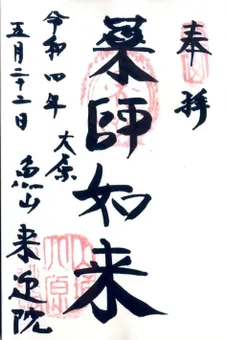 奉拝
薬師如来
令和四年
五月二十二日
大原
魚山
来迎院